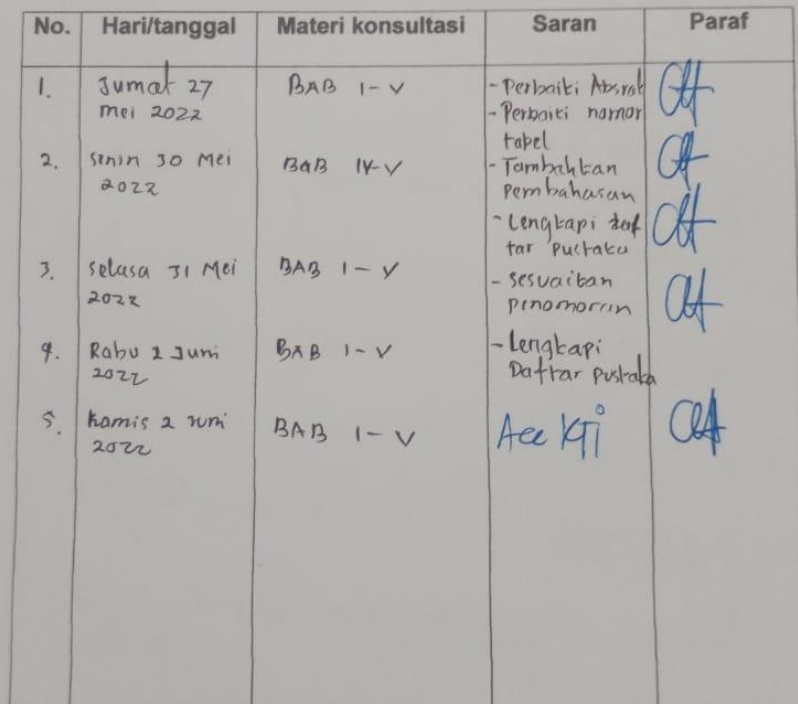 No. Hari/tanggal Materi konsultasi Saran Paraf
1. Jumat 27 BAB I - V - Perbaiki Absrak
mei 2022 - Perbaiki nomor
tabel
2. Senin 30 Mei BAB IV-V - Tambahkan
2022 Pembahasan
- Lengkapi daf
tar pustaka
3. Selasa 31 Mei BAB I - V - Sesuaikan
2022 penomoran
4. Rabu 1 Juni BAB I - V - Lengkapi
2022 Daftar Pustaka
5. Kamis 2 Juni BAB I - V Acc KTI
2022